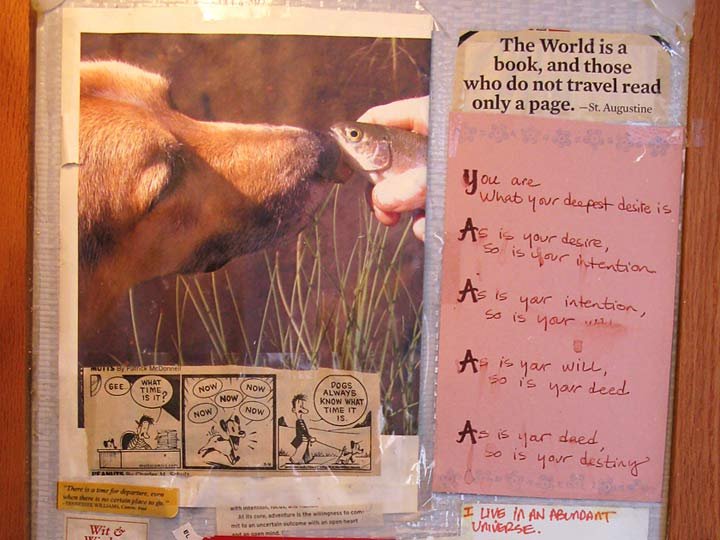 The World is a
book, and those
who do not travel read
only a page. —St. Augustine
You are
What your deepest desire is
As is your desire,
so is your intention
As is your intention,
so is your will
As is your will,
so is your deed
As is your deed,
so is your destiny
I LIVE IN AN ABUNDANT
UNIVERSE.
MUTTS By Patrick McDonnell
GEE
WHAT
TIME
IS IT?
NOW
NOW
NOW
NOW
NOW
DOGS
ALWAYS
KNOW WHAT
TIME IT
IS.
PEANUTS By Charles M. Schulz
"There is a time for departure, even
when there is no certain place to go."
—TENNESSEE WILLIAMS,
Wit &
At its core, adventure is the willingness to com-
mit to an uncertain outcome with an open heart
and an open mind.